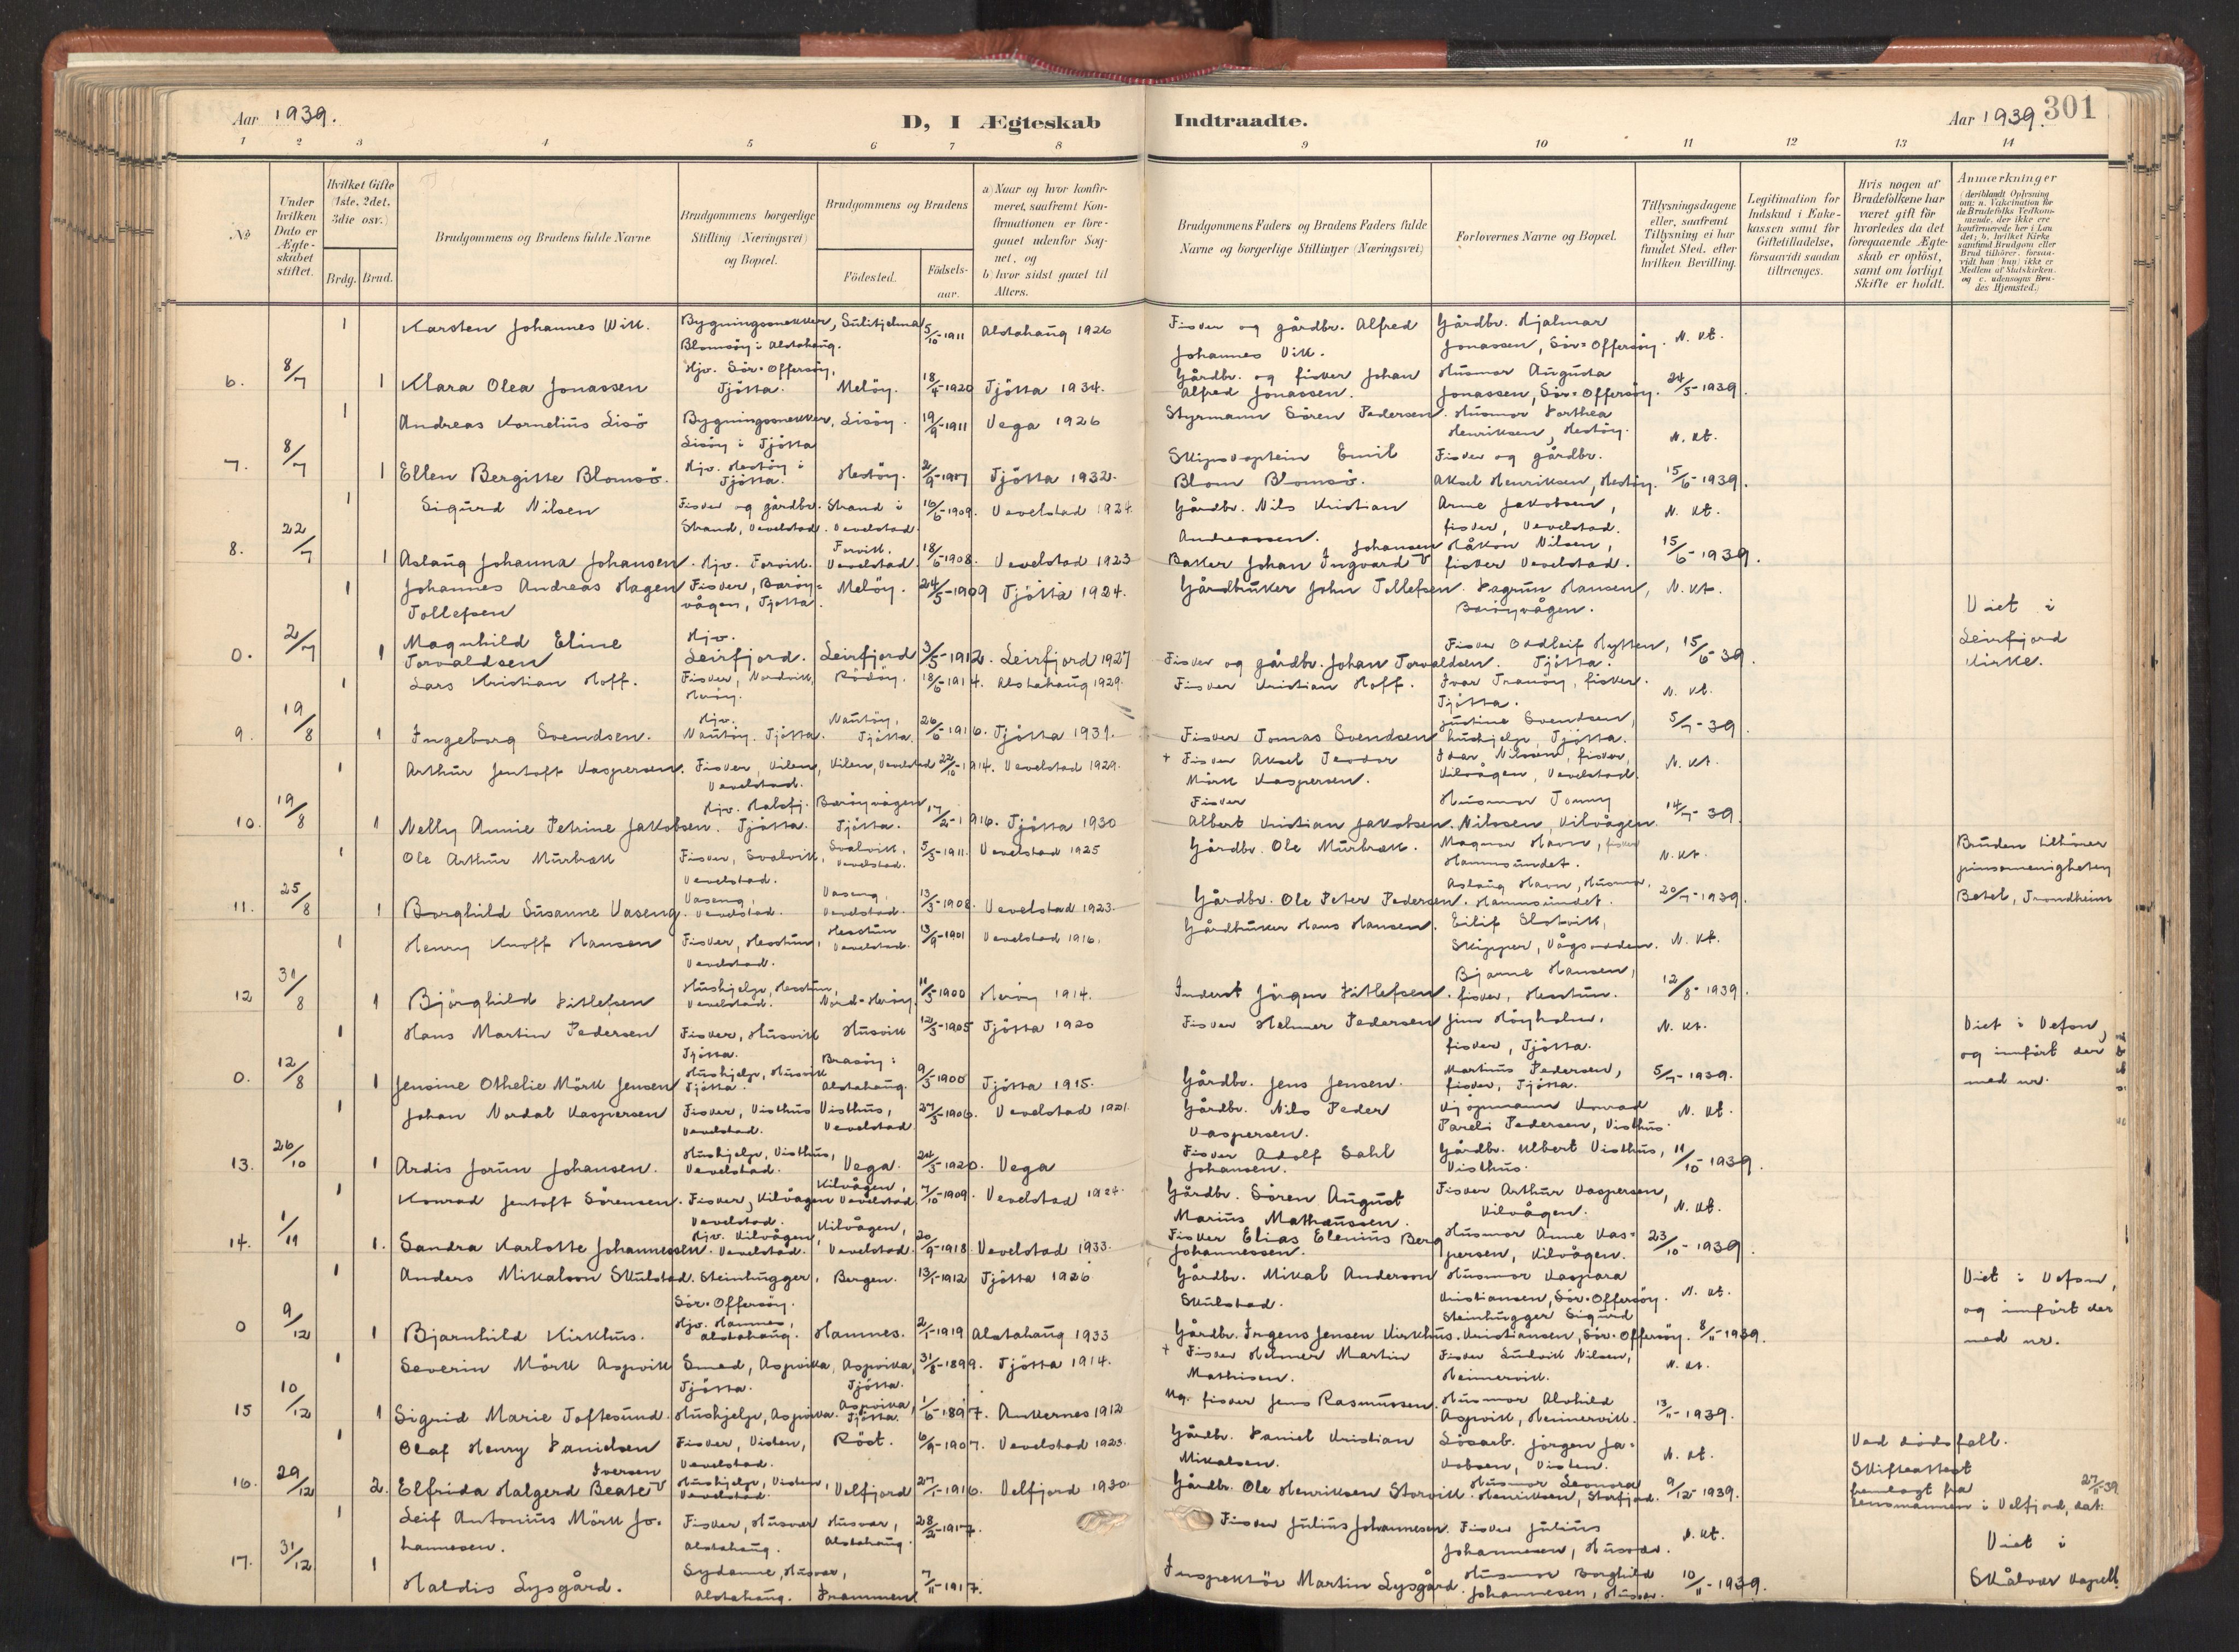 Aar 1939.
D, I Ægteskab Indtraadte.
Aar 1939. 301
1 2 3 4 5 6 7 8 9 10 11 12 13 14
№
Under hvilken Dato er Ægte-skabet stiftet.
Hvilket Gifte (1ste, 2det, 3die osv.)
Brdg. Brud.
Brudgommens og Brudens fulde Navne
Brudgommens borgerlige Stilling (Næringsvei) og Bopæl.
Brudgommens og Brudens
Födested. Födsels-aar.
a) Naar og hvor konfir-meret, saafremt Kon-firmationen er fore-gaaet udenfor Sog-net, og b) hvor sidst gaaet til Alters.
Brudgommens Faders og Brudens Faders fulde Navne og borgerlige Stillinger (Næringsvei)
Forlovernes Navne og Bopæl.
Tillysningsdagene eller, saafremt Tillysning ei har fundet Sted, efter hvilken Bevilling.
Legitimation for Indskud i Enke-kassen samt for Giftetilladelse, forsaavidt saadan tiltrænges.
Hvis nogen af Brudefolkene har været gift før hvorledes da det foregaaende Ægte-skab er oplöst, samt om lovligt Skifte er holdt.
Anmærkninger (deriblandt Oplysning om: a. Vakcination for de Brudefolks Vedkom-mende, der ikke ere konfirmerede her i Lan det; b. hvilket Kirke samfund Brudgom eller Brud tilhörer, forsaa-vidt han (hun) ikke er Medlem af Statskirken, og c. udensogns Bru-des Hjemsted.)
1 Karsten Johannes Wik. Bygningssnekker, Blomsöy i Alstahaug. Sulitjelma 5/10-1911 Alstahaug 1926 Fisker og gårdbr. Alfred Johannes Vik. Gårdbr. Hjalmar Jonassen, Sör-Offersöy. N. kt.
6. 8/7 1 Klara Olea Jonassen Hjv. Sör-Offersöy, Tjötta. Melöy. 18/4-1920 Tjötta 1934. Gårdbr. og fisker Johan Alfred Jonassen. Husmor Augusta Jonassen, Sör-Offersöy. 24/5-1939.
1 Andreas Kornelius Lisö Bygningssnekker, Lisöy i Tjötta Lisöy. 19/9-1911 Vega 1926 Styrmann Sören Pedersen. Husmor Dorthea Henriksen, Hestöy. N. kt.
7. 8/7 1 Ellen Bergitte Blomsö. Hjv. Hestöy i Tjötta. Hestöy. 2/9-1917 Tjötta 1932. Skipskaptein Emil Blom Blomsö. Fisker og gårdbr. Aksel Henriksen, Hestöy. 15/6-1939.
1 Sigurd Nilsen Fisker og gårdbr. Strand, Vevelstad. Strand i Vevelstad 16/6-1909. Vevelstad 1924. Gårdbr. Nils Kristian Andreassen. Arne Jakobsen, fisker, Vevelstad. N. kt.
8. 22/7 1 Aslaug Johanna Johansen. Hjv. Forvik. Forvik. Vevelstad 18/6-1908. Vevelstad 1923 Baker Johan Ingvard Johansen Håkon Nilsen, fisker Vevelstad. 15/6-1939.
1 Johannes Andreas Hagen Tollefsen Fisker, Baröy-vågen, Tjøtta. Melöy. 24/5-1909 Tjötta 1924. Gårdbruker John Tollefsen. Dagrun Hansen, Baröyvågen. N. kt.
0. 2/7 1 Magnhild Eline Torvaldsen Hjv. Leirfjord. Leirfjord 3/5-1912. Leirfjord 1927 Fisker og gårdbr. Johan Torvaldsen. Fisker Oddleif Hytten, Tjötta. 15/6-39. Viet i Leirfjord kirke.
1 Lars Kristian Hoff. Fisker, Nordvik, Heröy. Rödöy. 18/6-1914. Alstahaug 1929. Fisker Kristian Hoff. Ivar Tranöy, fisker. Tjötta. N. kt.
9. 19/8 1 Ingeborg Svendsen. Hjv. Nautöy. Tjötta. Nautöy, Tjötta. 26/6-1916. Tjötta 1931. Fisker Tomas Svendsen Justine Svendsen, hushjelp, Tjötta. 5/7-39
1 Arthur Jentoft Kaspersen. Fisker, Kilen, Vevelstad. Kilen, Vevelstad 22/10-1914. Vevelstad 1929. + Fisker Aksel Teodor Mörk Kaspersen. Ivar Nilssen, fisker, Kilvågen, Vevelstad. N. kt.
10. 19/8 1 Nelly Annie Petrine Jakobsen. Hjv. Halsfj. Tjötta. Baröyvågen Tjötta. 17/2-1916. Tjötta 1930 Fisker Albert Kristian Jakobsen. Husmor Tonny Nilssen, Kilvågen. 14/7-39.
1 Ole Arthur Murbræk Fisker, Svalvik, Vevelstad. Svalvik, Vevelstad. 5/5-1911. Vevelstad 1925 Gårdbr. Ole Murbræk. Magnor Havn, fisker Hamnsundet. N. kt.
11. 25/8 1 Borghild Susanne Vaseng. Vaseng, Vevelstad. Vaseng, Vevelstad. 13/3-1908. Vevelstad 1923. Gårdbr. Ole Peter Pedersen. Aslaug Havn, Husmor, Hamnsundet. 20/7-1939. Bruden tilhører pinsemenigheten Betel, Trondheim
1 Henry Knoff Hansen Fisker, Hesstun, Vevelstad. Hesstun Vevelstad. 13/9-1901 Vevelstad 1916. Gårdbruker Hans Hansen. Eilif Slotvik, Skipper, Vågsodden. N. kt.
12 31/8 1 Björghild Ditlefsen Hushjelp, Hesstun, Vevelstad. Nord-Heröy. 11/5-1900 Heröy 1914. Inderst Jörgen Ditlefsen. Bjarne Hansen, fisker, Hesstun. 12/8-1939.
1 Hans Martin Pedersen Fisker, Husvik Tjötta. Husvik 12/3-1905 Tjötta 1920 Fisker Helmer Pedersen Jim Höyholm, fisker, Tjötta. N. kt. Viet i Vefsn, og innfört der med nr.
0. 12/8 1 Jensine Othelie Mörk Jensen Hushjelp, Husvik Tjötta. Brasöy i Alstahaug. 9/3-1900 Tjötta 1915. Gårdbr. Jens Jensen. Martinus Pedersen, fisker, Tjötta. 5/7-1939.
1 Johan Nordal Kaspersen Fisker, Visthus Vevelstad. Visthus, Vevelstad 27/5-1906. Vevelstad 1921. Gårdbr. Nils Peder Kaspersen. Kjöpmann Konrad Pareli Pedersen, Visthus. N. kt.
13. 26/10 1 Ardis Jorun Johansen. Hushjelp, Visthus, Vevelstad. Vega. 24/5-1920. Vega Fisker Adolf Dahl Johansen. Gårdbr. Albert Visthus, Visthus. 11/10-1939.
1 Konrad Jentoft Sörensen. Fisker, Kilvågen Vevelstad. Kilvågen, Vevelstad 7/10-1909. Vevelstad 1924. Gårdbr. Sören August Marius Mathæussen. Fisker Arthur Kaspersen, Kilvågen. N. kt.
14. 1/11 1. Sandra Karlotte Johannessen. Hjv. Kilvågen, Vevelstad. Kilvågen, Vevelstad. 20/9-1918. Vevelstad 1933. Fisker Elias Elenius Berg Johannessen. Husmor Anne Kas-persen, Kilvågen. 23/10-1939.
1 Anders Mikalson Skulstad. Steinhugger, Sör-Offersöy. Bergen. 13/1-1912 Tjötta 1926 Gårdbr. Mikal Anderson Skulstad. Husmor Kaspara Kristiansen, Sör-Offersöy. N. kt. Viet i Vefsn, og innfört der med nr.
0 9/12 1 Bjarnhild Kirkhus. Hjv. Hamnes, Alstahaug. Hamnes. 2/1-1919 Alstahaug 1933 Gårdbr. Ingens Jensen Kirkhus. Steinhugger Sigurd Kristiansen, Sör-Offersöy. 8/11-1939.
1 Severin Mörk Aspvik Smed, Aspvika, Tjötta. Aspvika, Tjötta. 31/8-1899. Tjötta 1914. + Fisker Helmer Martin Mathisen. Fisker Ludvik Nilsen, Heimervik. N. kt.
15 10/12 1 Sigrid Marie Toftesund. Hushjelp, Aspvika. Aspvika, Tjötta. 1/6-1897. Ankernes 1912 Ug. fisker Jens Rasmussen. Husmor Alvhild Aspvik, Heimervik. 13/11-1939.
1 Olaf Henry Danielsen Fisker, Visten, Vevelstad. Röst. 6/9-1907. Vevelstad 1923. Gårdbr. Daniel Kristian Mikalsen. Lösarb. Jörgen Ja-kobsen, Visten. N. kt. Ved dödsfall. Skifteattest fremlagt fra Lensmannen i Velfjord, dat. 27/11-39
16. 29/12 2. Elfrida Halgerd Beate Iversen Hushjelp, Visten, Vevelstad. Velfjord 27/1-1916. Velfjord 1930. Gårdbr. Ole Henriksen Storvik. Husmor Leonora Henriksen, Storfjord. 9/12-1939.
1 Leif Antonius Mörk Jo-hannesen. Fisker, Husvær Alstahaug. Husvær, Alstahaug. 28/2-1917. Fisker Julius Johannesen. Fisker Julius Johannesen, Husvær. N. kt. Viet i Skålvær kapell.
17. 31/12 1 Haldis Lysgård. Sydame, Husvær, Alstahaug. Drammen 7/11-1917. Inspektör Martin Lysgård. Husmor Borghild Johannesen, Husvær. 10/11-1939.